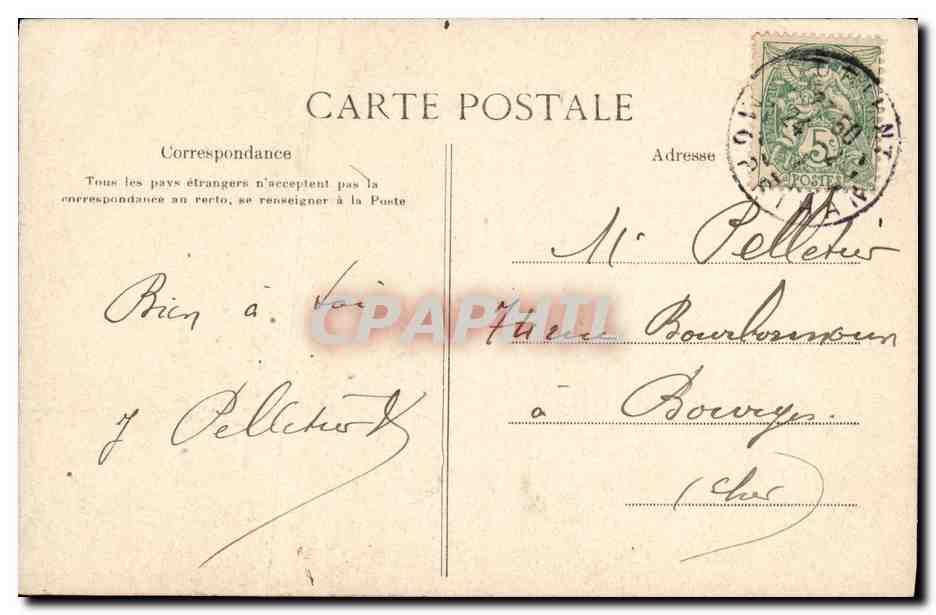 CARTE POSTALE
Correspondance
Tous les pays étrangers n'acceptent pas la
correspondance au recto, se renseigner à la Poste
Bien à toi
J Pelletier
Adresse
5c
POSTES
Mr Pelletier
rue Bourbonnoux
à Bourges.
(Cher)
CPAPHIL